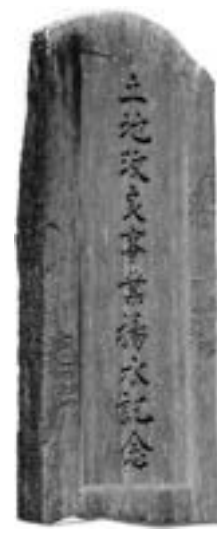 土地改良事業揚水記念